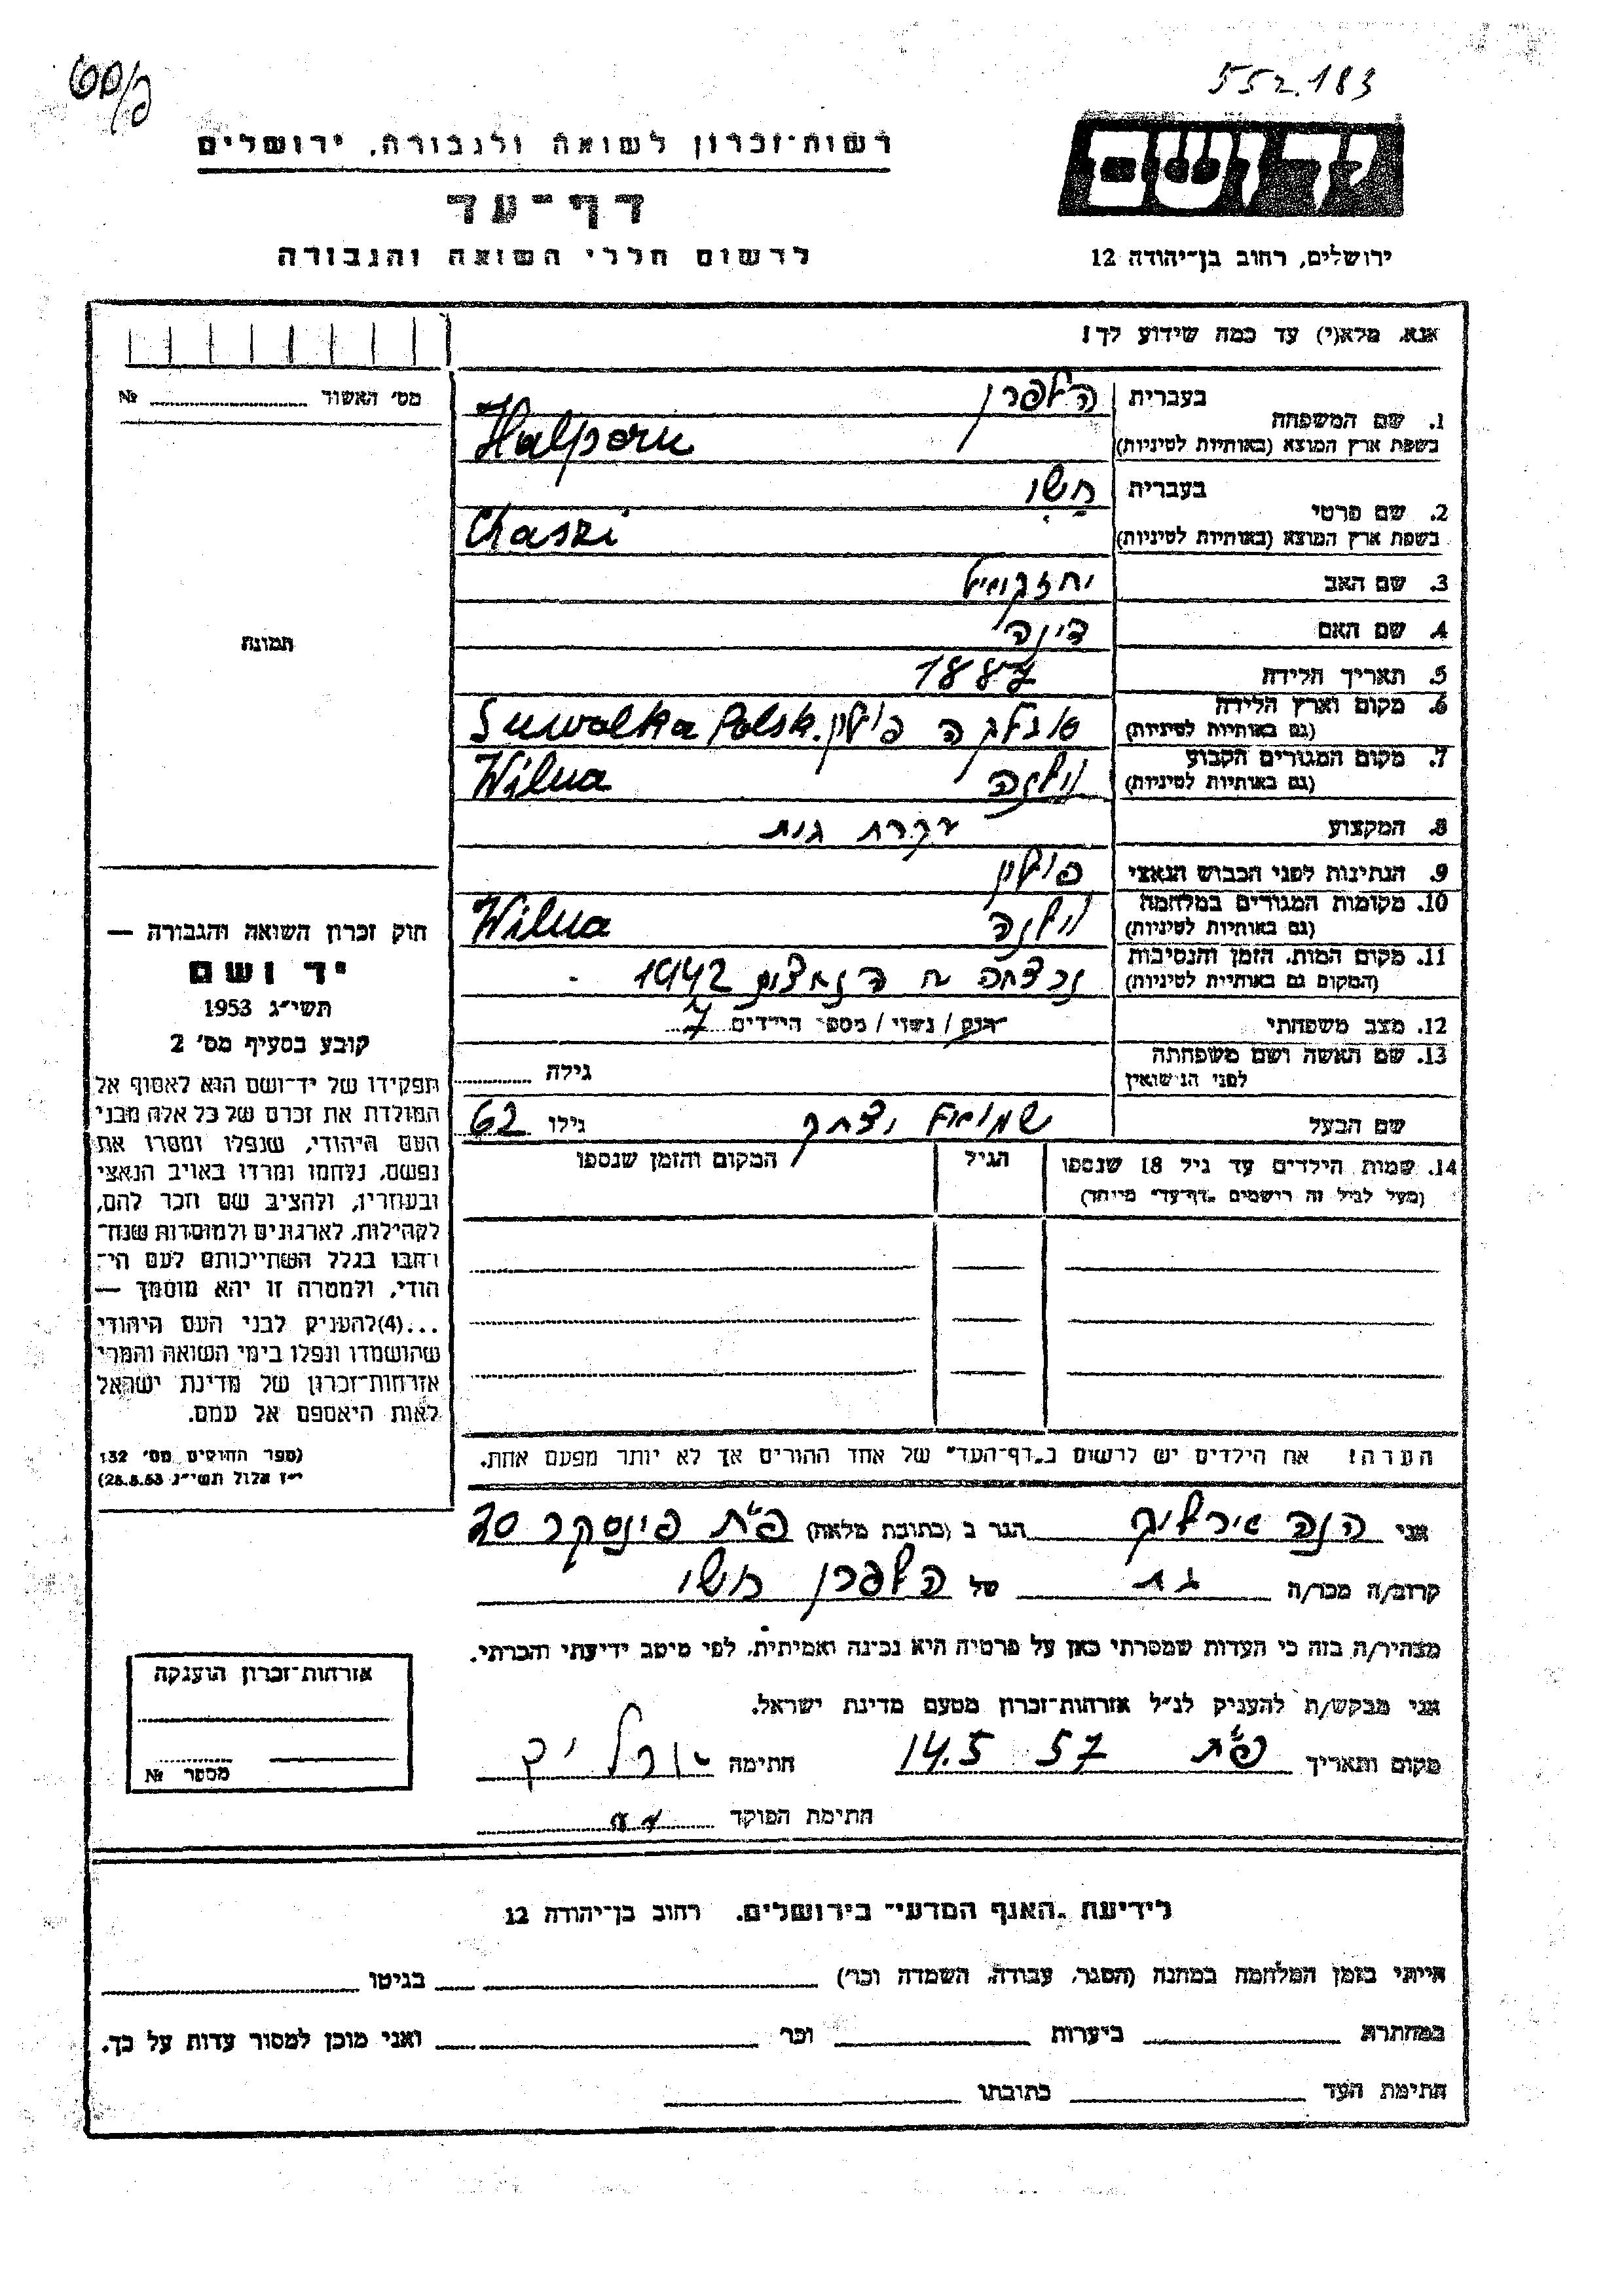 552.183
יד ושם
רשות־זכרון לשואה ולגבורה, ירושלים
דף־עד
לרשום חללי השואה והגבורה
ירושלים, רחוב בן־יהודה 12
אנא, מלא(י) עד כמה שידוע לך!
מס׳ האשור № 
1. שם המשפחה בעברית הלפרן
בשפת ארץ המוצא (באותיות לטיניות) Halpern
2. שם פרטי בעברית חשי
בשפת ארץ המוצא (באותיות לטיניות) Chaszi
3. שם האב יחזקאל
4. שם האם דינה
5. תאריך הלידה 1887
6. מקום וארץ הלידה (גם באותיות לטיניות) סובלקה פולין. Suwalka Polsk
7. מקום המגורים הקבוע (גם באותיות לטיניות) וילנה Wilna
8. המקצוע עקרת בית
9. הנתינות לפני הכבוש הנאצי פולין
10. מקומות המגורים במלחמה (גם באותיות לטיניות) וילנה Wilna
11. מקום המות, הזמן והנסיבות (המקום גם באותיות לטיניות) נרצחה ע הנאצים 1942
12. מצב משפחתי רווק / נשוי / מספר הילדים 7
13. שם האשה ושם משפחתה לפני הנישואין גילה
שם הבעל שמואל יצחק גילו 62
14. שמות הילדים עד גיל 18 שנספו הגיל המקום והזמן שנספו
(מעל לגיל זה רושמים „דף־עד״ מיוחד)
הערה! את הילדים יש לרשום ב„דף־העד״ של אחד ההורים אך לא יותר מפעם אחת.
תמונה
חוק זכרון השואה והגבורה —
יד ושם
תשי״ג 1953
קובע בסעיף מס׳ 2
תפקידו של יד־ושם הוא לאסוף אל
המולדת את זכרם של כל אלה מבני
העם היהודי, שנפלו ומסרו את
נפשם, נלחמו ומרדו באויב הנאצי
ובעוזריו, ולהציב שם וזכר להם,
לקהילות, לארגונים ולמוסדות שנח־
רבו בגלל השתייכותם לעם הי־
הודי, ולמטרה זו יהא מוסמך —
...(4)להעניק לבני העם היהודי
שהושמדו ונפלו בימי השואה והמרי
אזרחות־זכרון של מדינת ישראל
לאות היאספם אל עמם.
(ספר החוקים מס׳ 132
י״ז אלול תשי״ג 28.8.53)
אני הנה הגר ב (כתובת מלאה) פ״ת פינסקר 20
קרוב/ה מכר/ה בת של הלפרן חשי
מצהיר/ה בזה כי העדות שמסרתי כאן על פרטיה היא נכונה ואמיתית, לפי מיטב ידיעתי והכרתי.
אני מבקש/ת להעניק לנ״ל אזרחות־זכרון מטעם מדינת ישראל.
מקום ותאריך פ״ת 14.5 57 חתימה
חתימת הפוקד
אזרחות־זכרון הוענקה
מספר №
לידיעת „האגף המדעי״ בירושלים, רחוב בן־יהודה 12
הייתי בזמן המלחמה במחנה (הסגר, עבודה, השמדה וכו׳) בגיטו
במחתרת ביערות וכו׳ ואני מוכן למסור עדות על כך.
חתימת העד כתובתו